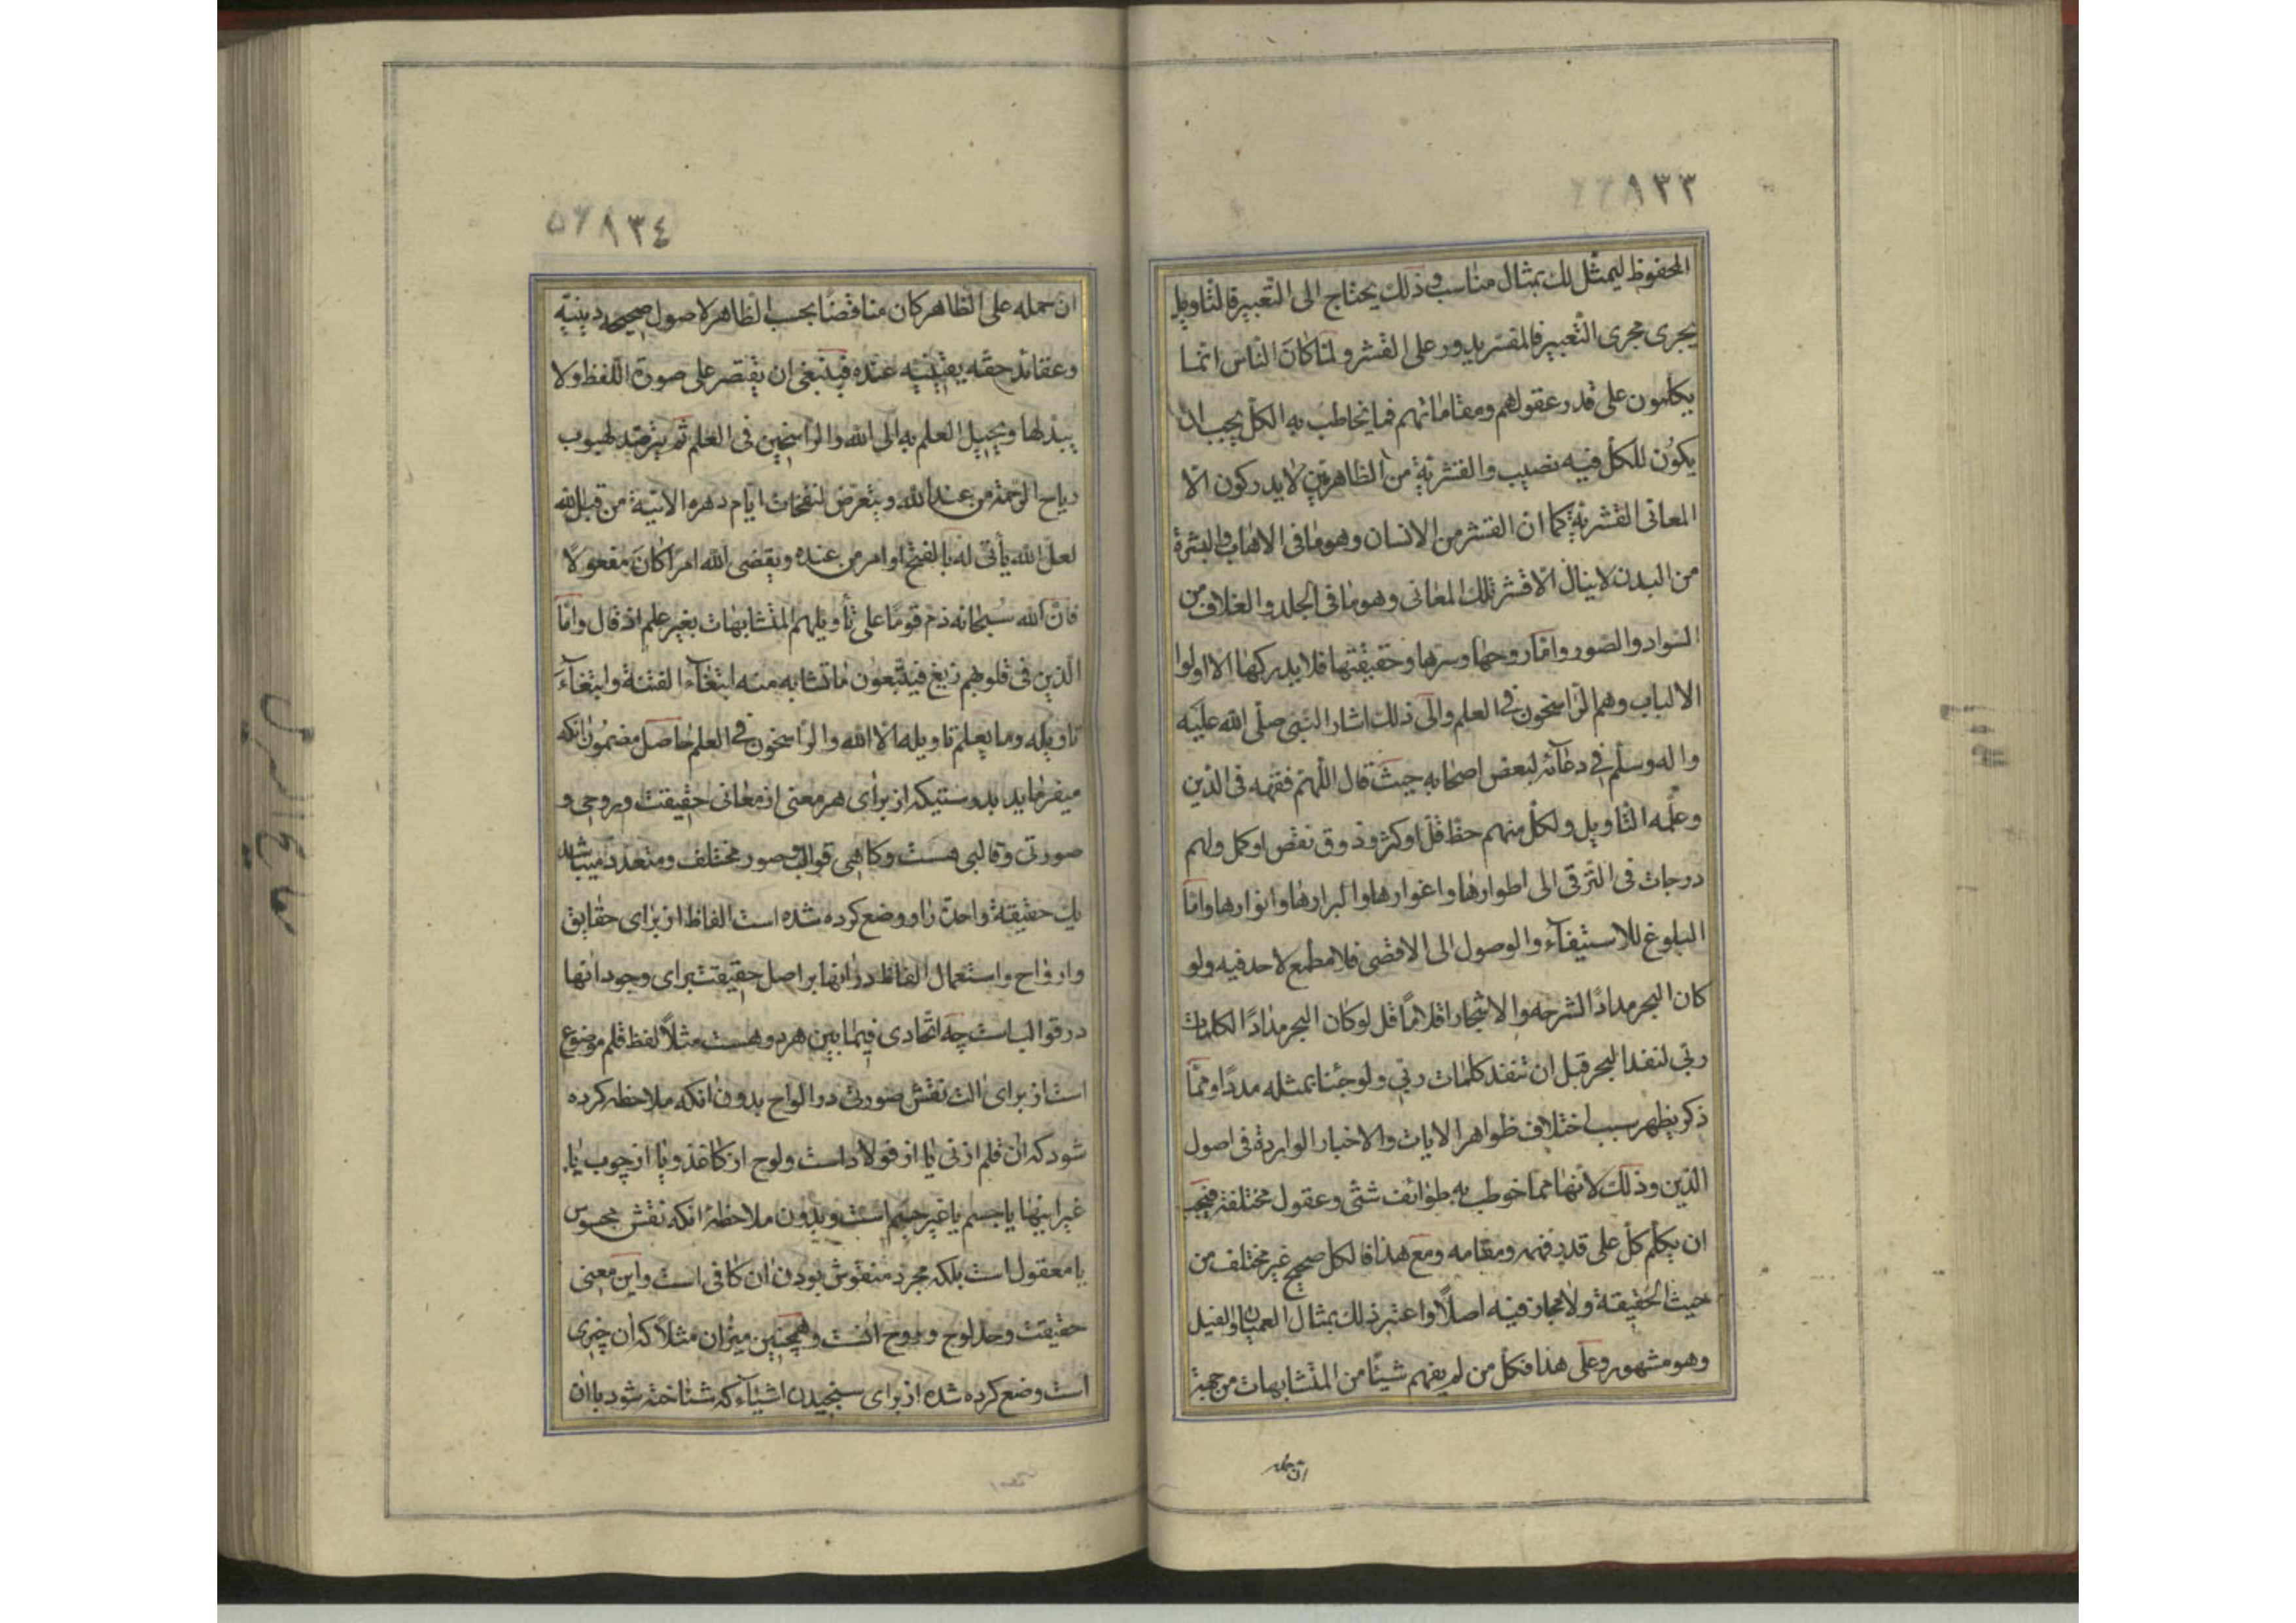 ٨٣٣
المحفوظ ليمثّل لك بمثال مناسب وذلك يحتاج الى التّعبير فالتّاويل
يجرى مجرى التّعبير فالمفسّر يدور على القشر ولمّا كانَ النّاس انّما
يكلّمون على قدر عقولهم ومقاماتهم فما يخاطب به الكلّ يجب ان
يكون للكلّ فيه نصيب والقشريّة من الظّاهريّين لا يدركون الّا
المعانى القشريّة كما انّ القشر من الانسان وهو ما فى الاهاب والبشرة
من البدن لا ينال الّا قشر تلك المعانى وهو ما فى الجلد والغلاف من
السّواد والصّور وامّا روحها وسرّها وحقيقتها فلا يدركها الا اولوا
الالباب وهم الرّاسخون فى العلم والى ذلك اشار النّبى صلّى الله عليه
واله وسلّم فى دعائه لبعض اصحابه حيث قال اللّهم فقّهه فى الدّين
وعلّمه التّاويل ولكلّ منهم حظّ قلّ او كثر وذوق نقص او كمل ولهم
درجات فى التّرقى الى اطوارها واغوارها واسرارها وانوارها وامّا
البلوغ للاستيفآء والوصول الى الاقصى فلا مطمع لاحد فيه ولو
كان البحر مدادًا لشرحه والاشجار اقلامًا قل لو كان البحر مدادًا لكلمات
ربّى لنفد البحر قبل ان تنفد كلمات ربّى ولو جئنا بمثله مددًا وممّا
ذكر يظهر سبب اختلاف ظواهر الايات والاخبار الواردة فى اصول
الدّين وذلك لانّها ممّا خوطب به طوائف شتّى وعقول مختلفة فيجب
ان يكلّم كلّ على قدر فهمه ومقامه ومع هذا فالكلّ صحيح غير مختلف من
حيث الحقيقة ولا مجاز فيه اصلًا واعتبر ذلك بمثال العميان والفيل
وهو مشهور وعلى هذا فكلّ من لم يفهم شيئًا من المتشابهات من جهة
ان حمله
٨٣٤
انّ حمله على الظّاهر كان مناقضًا بحسب الظّاهر لاصول صحيحه دينيّه
وعقائد حقّه يقينيّه عنده فينبغى ان يقتصر على صورة اللّفظ ولا
يبدّلها ويحيل العلم به الى الله والرّاسخين فى العلم ثم يترصّد لهبوب
رياح الرّحمة من عند الله ويتعرّض لنفحات ايّام دهره الاتية من قبل الله
لعلّ الله يأتى له بالفتح او امر من عنده ويقضى الله امرًا كانَ مفعولًا
فانّ الله سُبحانه ذمّ قومًا على تأويلهم المتشابهات بغير علم اذ قال وامّا
الّذين فى قلوبهم زيغ فيتّبعون ما تشابه منه ابتغآء الفتنة وابتغآءَ
تاويله وما يعلم تاويله الّا الله والرّاسخون فى العلم حاصل مضمون انكه
ميفرمايد بدرستيكه از براى هر معنى از معانى حقيقت وروحى و
صورتى وقالبى هست وكاهى قوالب وصور مختلف ومتعدد ميباشد
يك حقيقة واحدة را ووضع كرده شده است الفاظ از براى حقايق
وارواح واستعمال الفاظ در انها بر اصل حقيقت براى وجود انها
در قوالب است چه اتّحادى فيما بين هر دو هست مثلًا لفظ قلم موضوع
است از براى الت نقش صورت در الواح بدون انكه ملاحظه كرده
شود كه ان قلم از نى يا از فولاد است ولوح از كاغذ ويا از چوب يا
غير اينها يا جسم يا غير جسم است وبدون ملاحظه انكه نقش محسوس
يا معقول است بلكه مجرد منقوش بودن ان كافى است واين معنى
حقيقت وحد لوح وروح انست وهمچنين ميزان مثلًا كه ان چيزى
است وضع كرده شده از براى سنجيدن اشياء كه شناخته شود باان